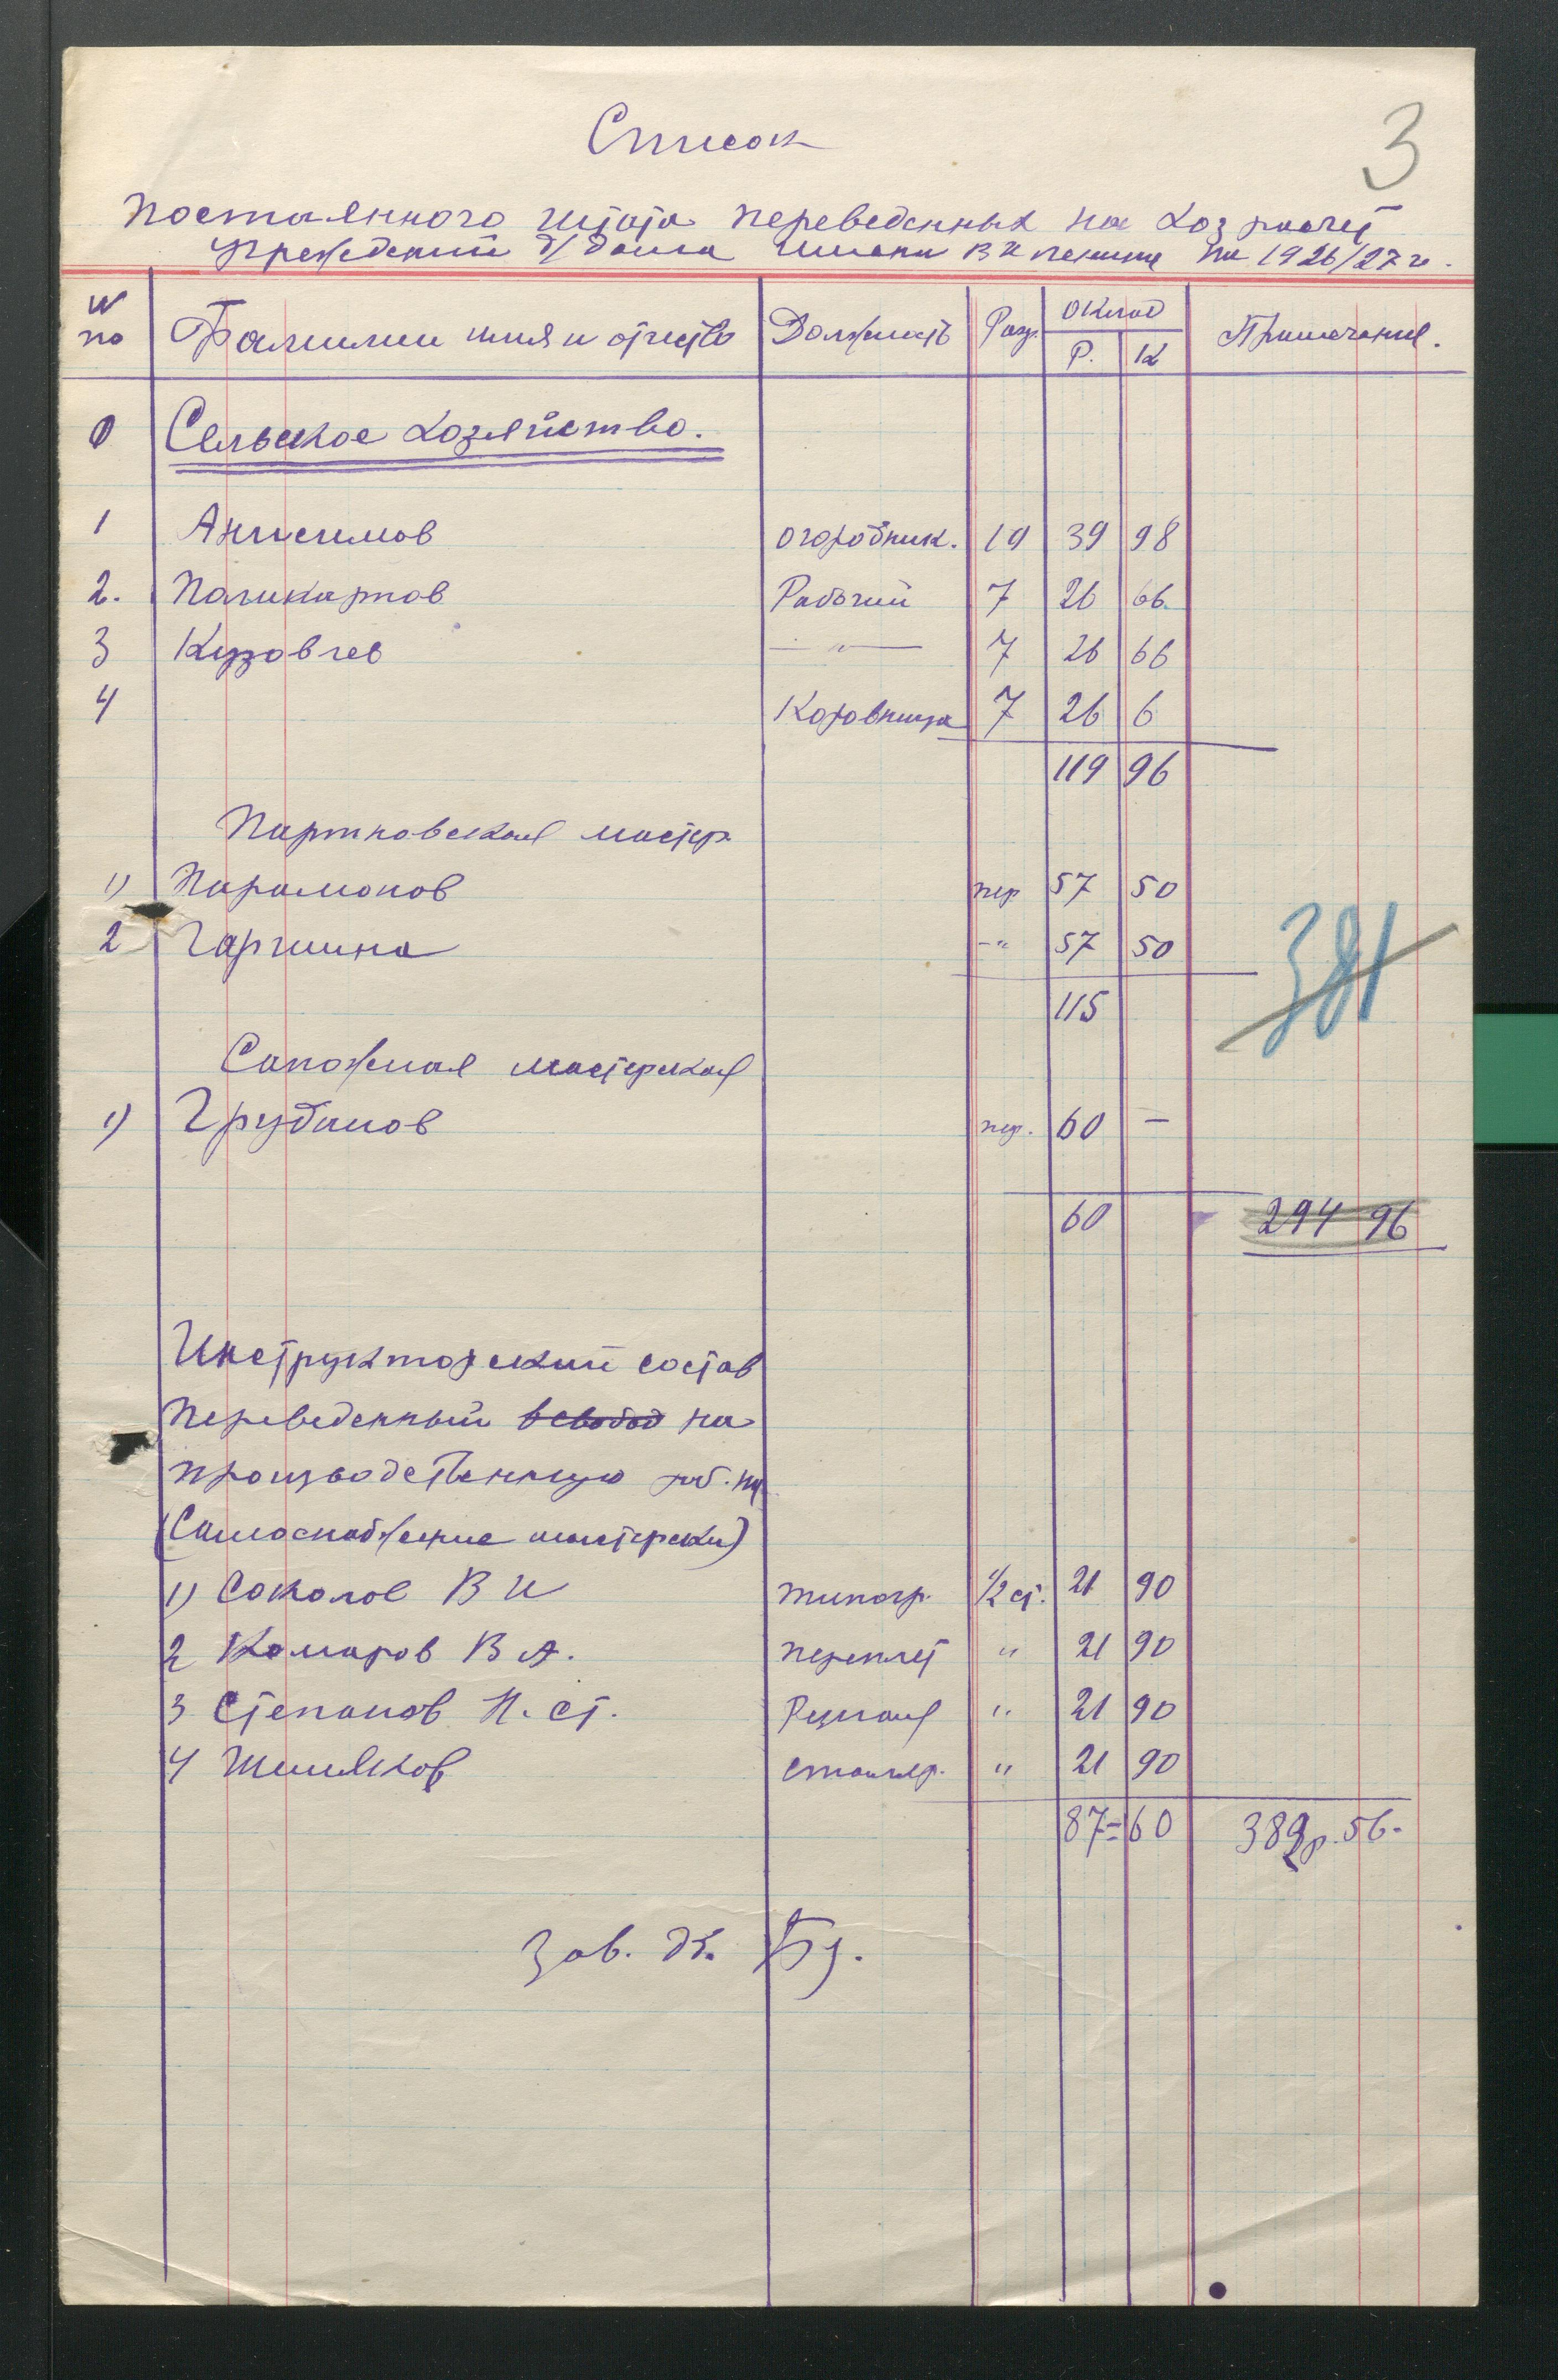 3
Список
постоянного штата переведенных на хозрасчет
учреждений д/дома имени В И Ленина на 1926/27 г.
№ по
Фамилии имя и отчество Должность Разр. Оклад Примечание.
Р. К
0 Сельское хозяйство.
1 Анисимов огородник. 19 39 98
2. Поликарпов Рабочий 7 26 66
3 Кузовлев — " — 7 26 66
4 Коровница 7 26 6
119 96
Портновская мастер.
1) Парамонов пер 57 50
2 Гаршина -" 57 50
381
115
Сапожная мастерская
1) Грубанов пер. 60 —
60 294 96
Инструкторский состав
переведенный на
производственную
(Самоснабжение мастерски)
1) Соколов В И типогр. 1/2 ст. 21 90
2 Комаров В А. переплет " 21 90
3 Степанов Н. Ст. " 21 90
4 столяр. " 21 90
87=60 382р. 56-
Зав. дд.